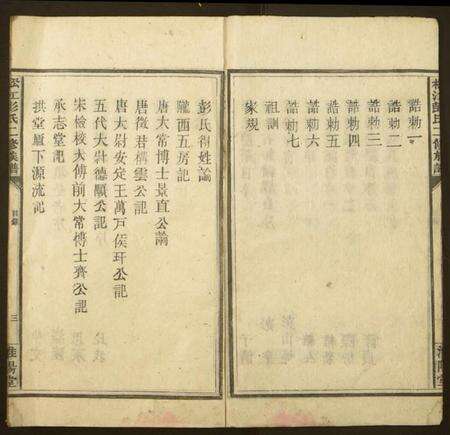 松江彭氏二修族譜
誥勅一
誥勅二
誥勅三
誥勅四
誥勅五
誥勅六
祖訓
家規
彭氏得姓論
隴西五房記
唐太常博士景直公論
唐徵君構雲公記
唐太尉安定王萬戶侯玕公記
五代太尉德顒公記
宋檢校太傅前太常博士齊公記
承志堂記
拱堂眉下源流記
松江彭氏二修族譜
目錄
三
淮陽堂